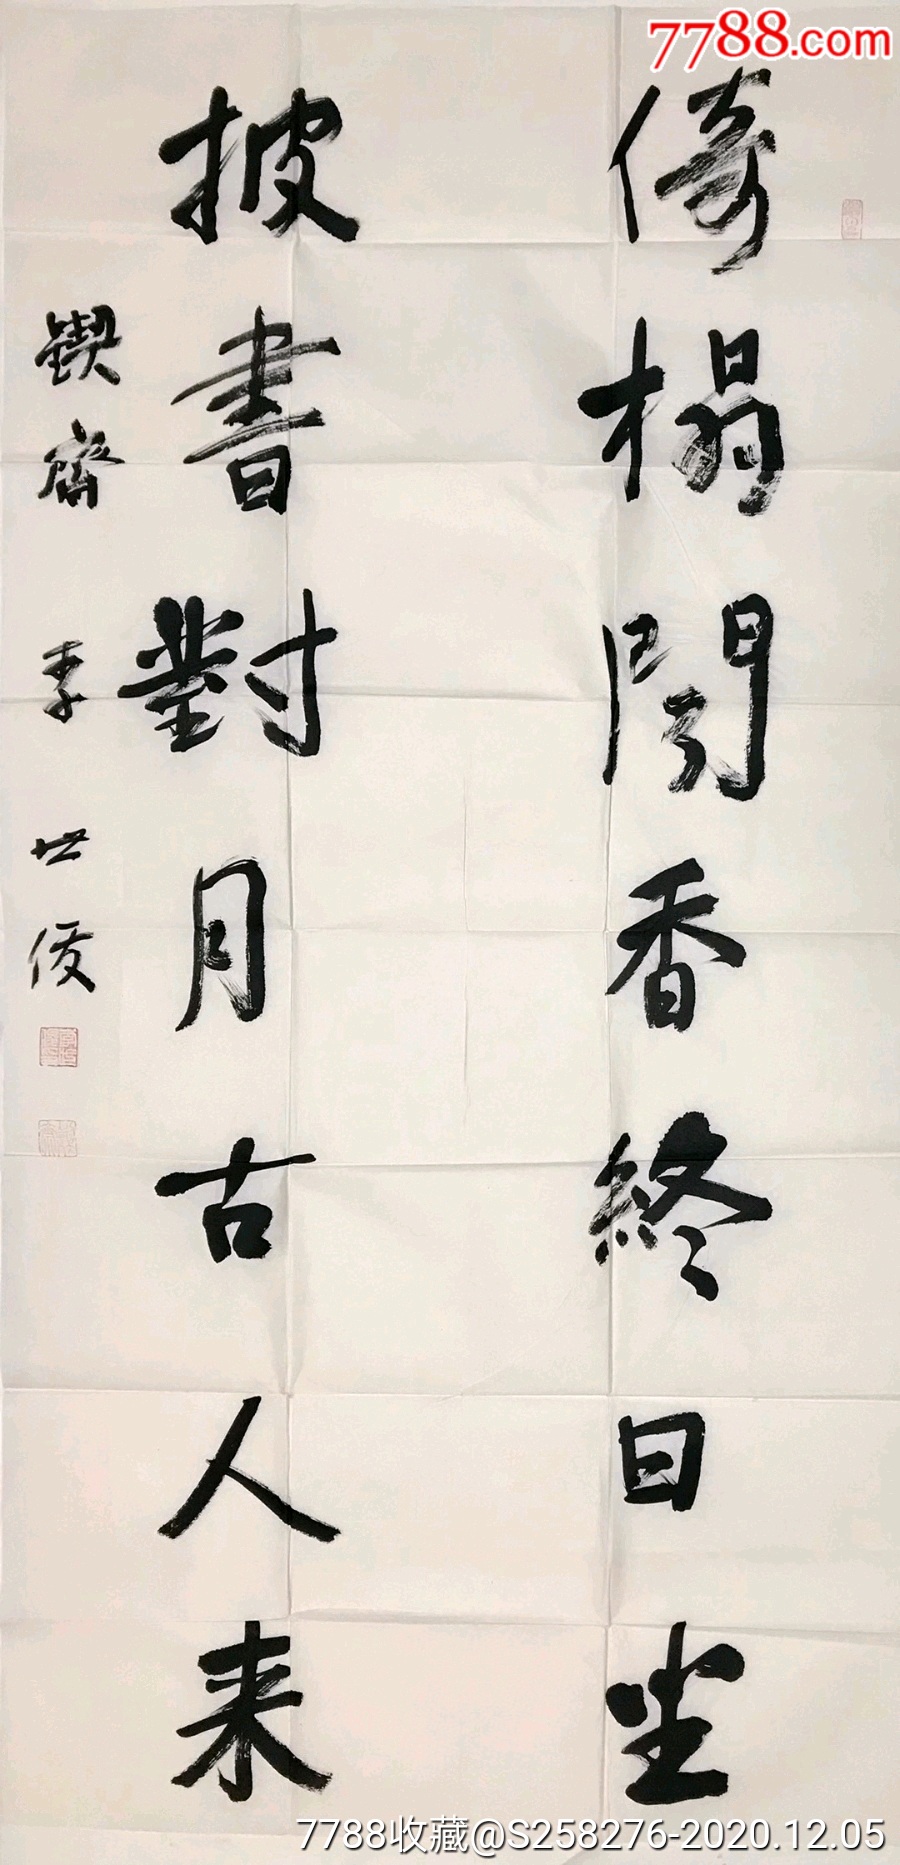 7788.com
倚榻闻香終日坐
披書對月古人来
鍥齋 李世俊
7788收藏@S258276-2020.12.05